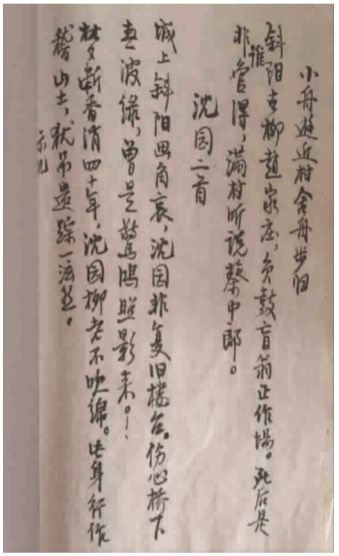 小舟遊近村舍舟步归
斜阳古柳赵家庄，负鼓盲翁正作場。死后是
非谁管得，满村听说蔡中郎。
沈园二首
城上斜阳画角哀，沈园非复旧楼台。伤心桥下
春波绿，曾是驚鴻照影来。
梦断香消四十年，沈园柳老不吹绵。此身行作
稽山土，犹吊遗踪一泫然。
示儿